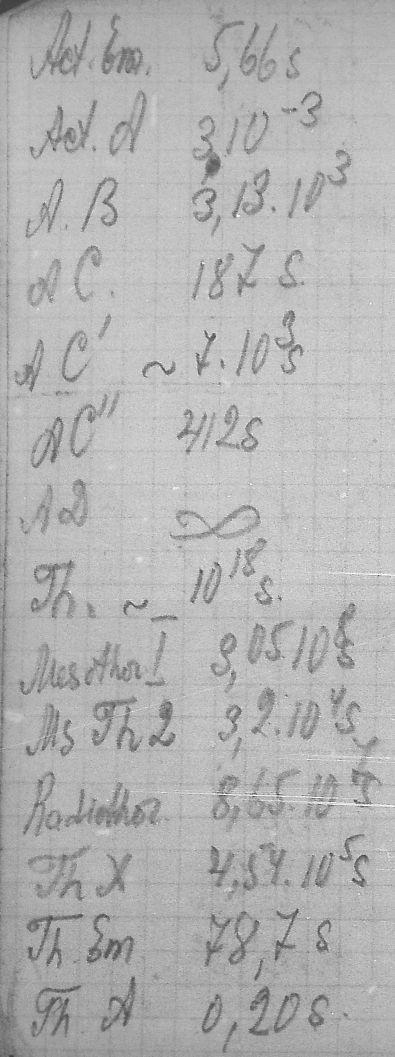 Act. Em. 5,66 s
Act. A 3,10⁻³
A. B 3,13.10³
A C. 187 s.
A C' ~ 7.10 s
AC'' 412 s
A D ∞
Th. ~ 10¹⁸ s.
Mesothor I 3,05.10⁸ s
Ms Th 2 3,2.10⁴ s
Radiothor. 8,65.10⁷ s
Th X 4,54.10⁵ s
Th. Em 78,7 s
Th A 0,20 s.